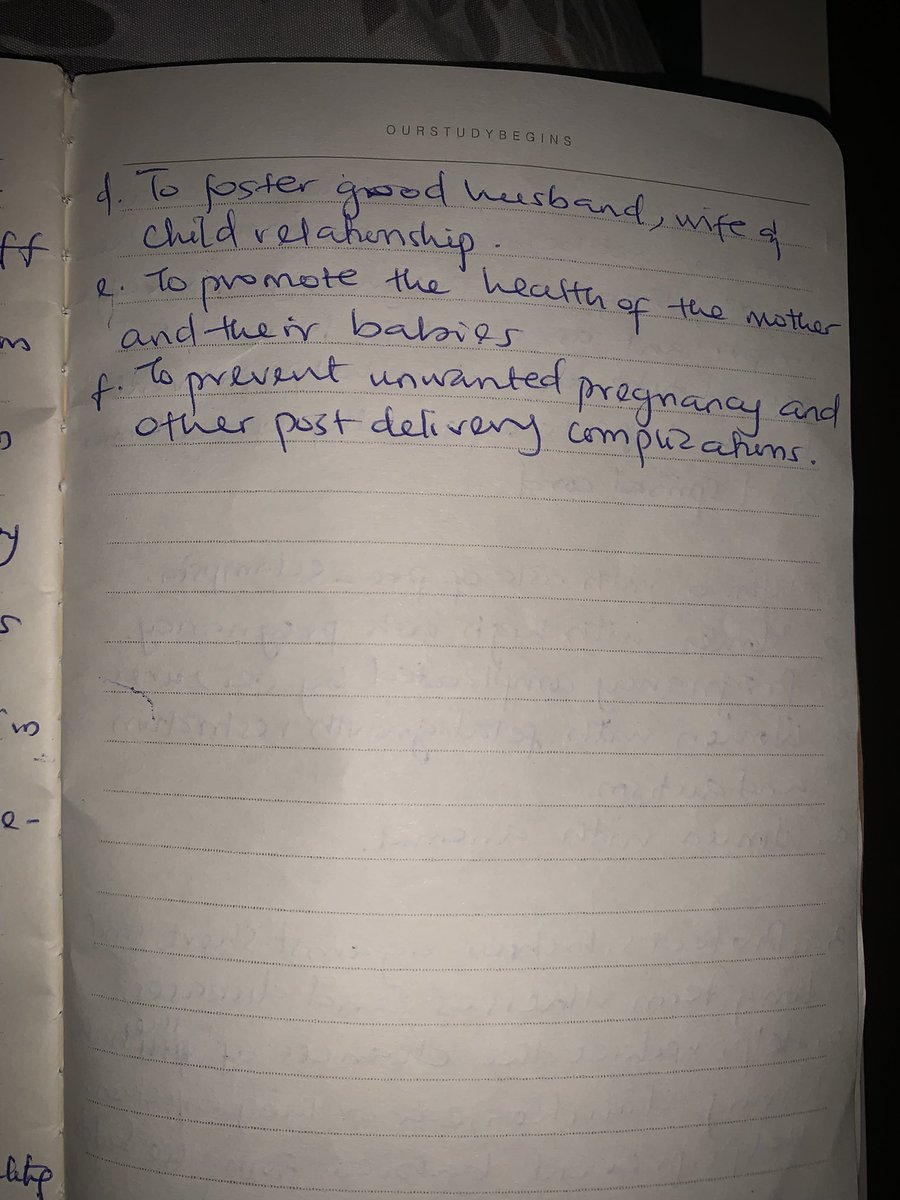 OURSTUDYBEGINS
d. To foster good husband, wife &
child relationship.
e. To promote the health of the mother
and their babies
f. To prevent unwanted pregnancy and
other post delivery complications.
ff
y
s
e-